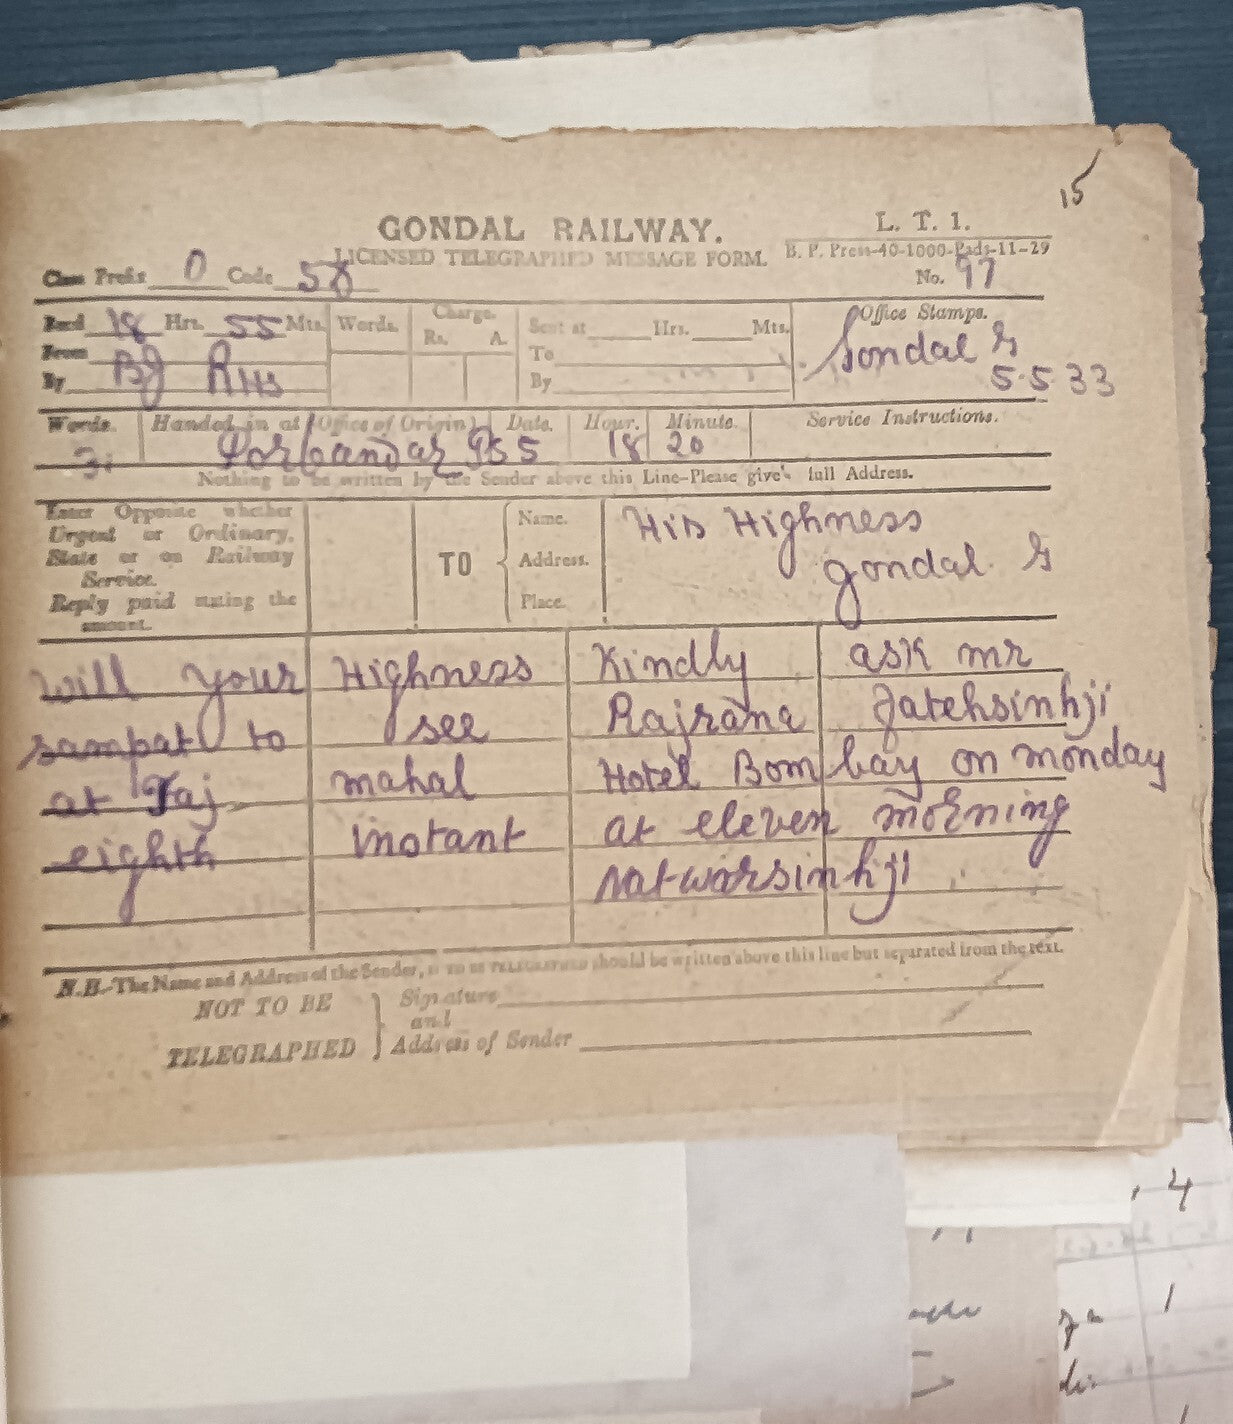 15
GONDAL RAILWAY.
L. T. 1.
LICENSED TELEGRAPHED MESSAGE FORM.
B. P. Press-40-1000-Pads-11-29
Class Prefix O Code 58
No. 97
Recd 18 Hrs. 55 Mts.
Words.
Charge.
Rs. A.
Sent at Hrs. Mts.
Office Stamps.
From BJ
By RHS
To
By
Gondal G
5.5.33
Words.
Handed in at (Office of Origin)
Date.
Hour.
Minute.
Service Instructions.
Porbandar 5 18 20
Nothing to be written by the Sender above this Line-Please give full Address.
Enter Opposite whether
Urgent or Ordinary,
State or on Railway
Service.
Reply paid stating the
amount.
TO
Name.
Address.
Place.
His Highness
gondal G
will your Highness Kindly ask mr
sampat to see Rajrana fatehsinhji
at Taj mahal Hotel Bombay on monday
eighth instant at eleven morning
natwarsinhji
N.B.-The Name and Address of the Sender, IF TO BE TELEGRAPHED should be written above this line but separated from the text.
NOT TO BE
TELEGRAPHED
Signature
and
Address of Sender
4
1